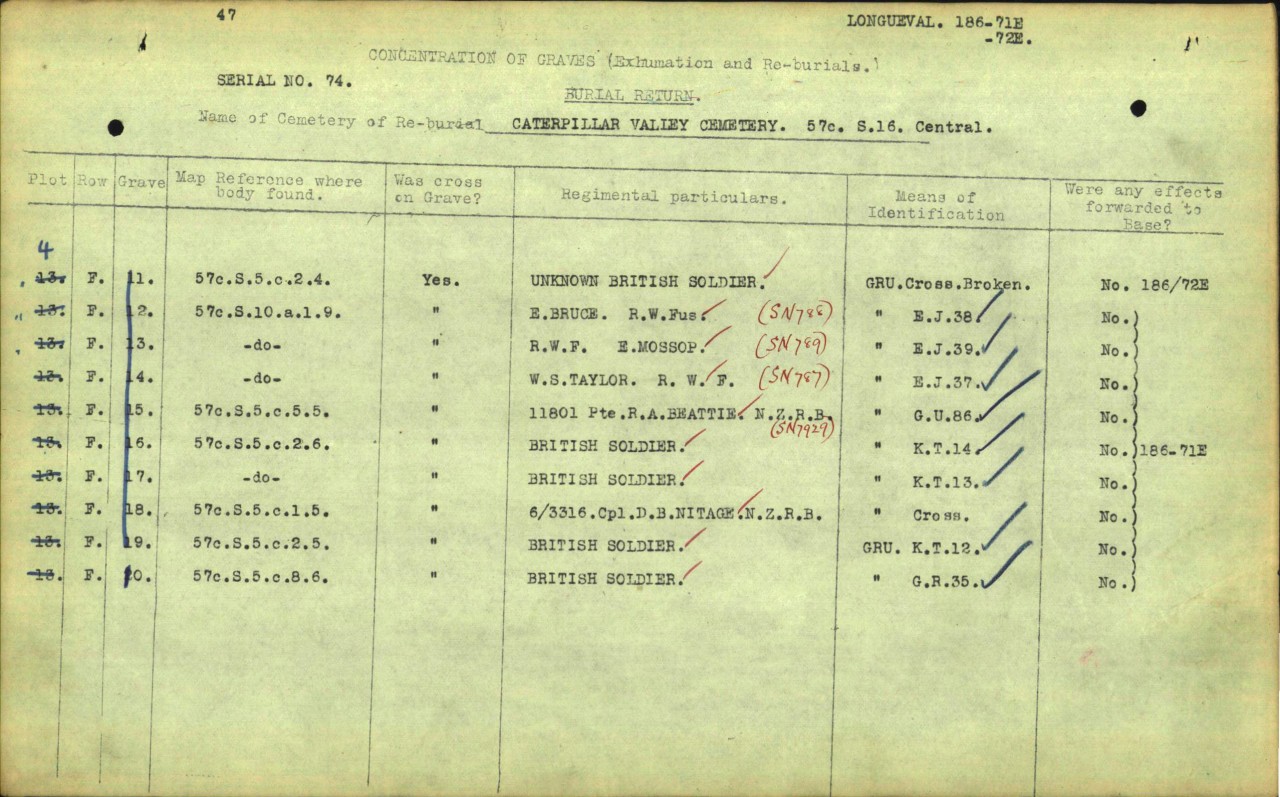 47
LONGUEVAL. 186-71E
-72E.
CONCENTRATION OF GRAVES (Exhumation and Re-burials.)
SERIAL NO. 74.
BURIAL RETURN.
Name of Cemetery of Re-burial CATERPILLAR VALLEY CEMETERY. 57c. S.16. Central.
Plot Row Grave Map Reference where body found. Was cross on Grave? Regimental particulars. Means of Identification Were any effects forwarded to Base?
4
13. F. 11. 57c.S.5.c.2.4. Yes. UNKNOWN BRITISH SOLDIER. GRU.Cross.Broken. No. 186/72E
" 13. F. 12. 57c.S.10.a.1.9. " E.BRUCE. R.W.Fus. (SN788) " E.J.38. No.
" 13. F. 13. -do- " R.W.F. E.MOSSOP. (SN789) " E.J.39. No.
13. F. 14. -do- " W.S.TAYLOR. R. W. F. (SN787) " E.J.37. No.
13. F. 15. 57c.S.5.c.5.5. " 11801 Pte.R.A.BEATTIE. N.Z.R.B. " G.U.86. No.
(SN7929)
13. F. 16. 57c.S.5.c.2.6. " BRITISH SOLDIER. " K.T.14. No. 186-71E
13. F. 17. -do- " BRITISH SOLDIER. " K.T.13. No.
13. F. 18. 57c.S.5.c.1.5. " 6/3316.Cpl.D.B.NITAGE.N.Z.R.B. " Cross. No.
13. F. 19. 57c.S.5.c.2.5. " BRITISH SOLDIER. GRU. K.T.12. No.
13. F. 20. 57c.S.5.c.8.6. " BRITISH SOLDIER. " G.R.35. No.